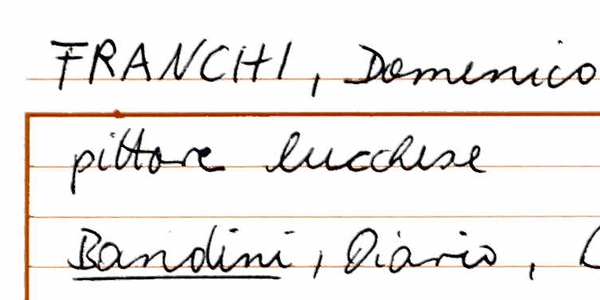 FRANCHI, Domenico
pittore lucchese
Bandini, Diario,